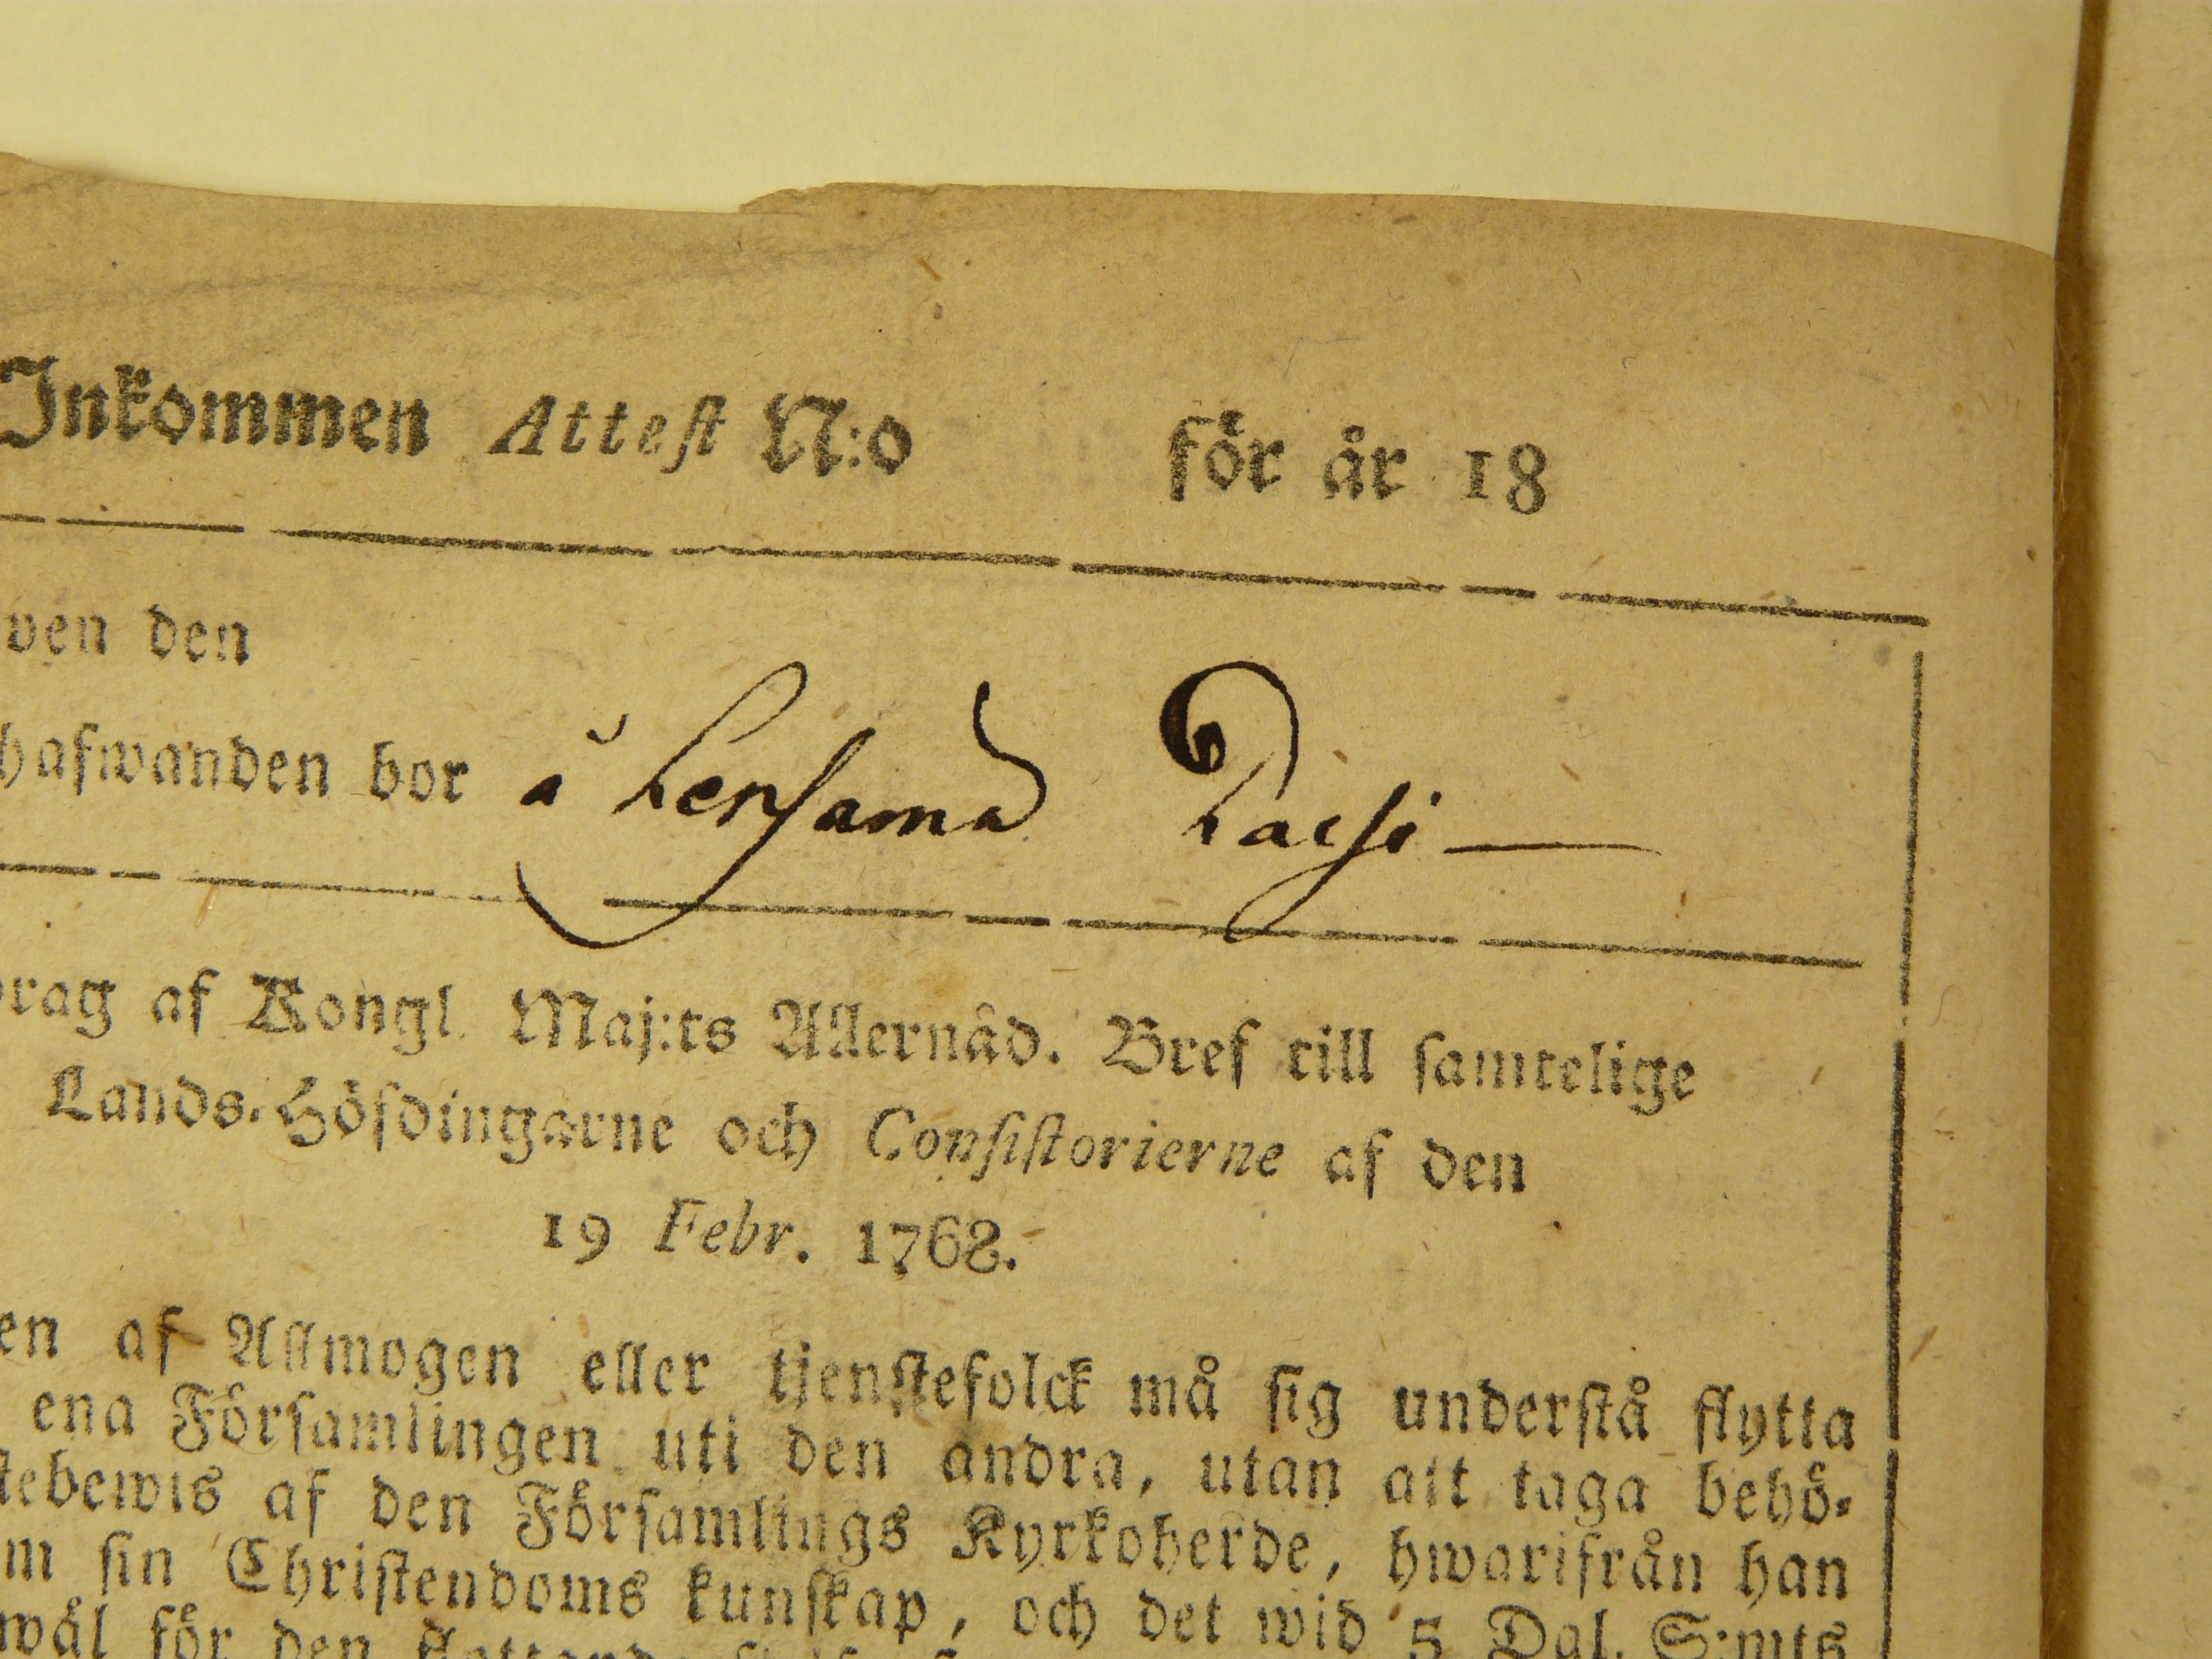 Inkommen Attest N:o för år 18
ven den
hafwanden bor å
rag af Kongl. Maj:ts Allernåd. Bref till samtelige
Lands-Höfdingarne och Consistorierne af den
19 Febr. 1768.
en af Allmogen eller tjenstefolck må sig understå flytta
ena Församlingen uti den andra, utan att taga behö-
stebewis af den Församlings Kyrkoherde, hwarifrån han
m sin Christendoms kunskap, och det wid 5 Dal. S:mts
wäl för den